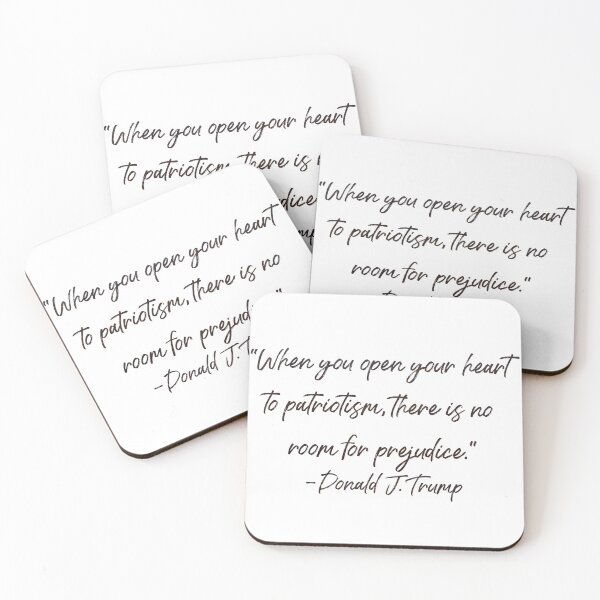 "When you open your heart
to patriotism, there is
"When you open your heart
to patriotism, there is no
room for prejudice."
"When you open your heart
to patriotism, there is no
room for prejudice."
-Donald J.
"When you open your heart
to patriotism, there is no
room for prejudice."
-Donald J. Trump